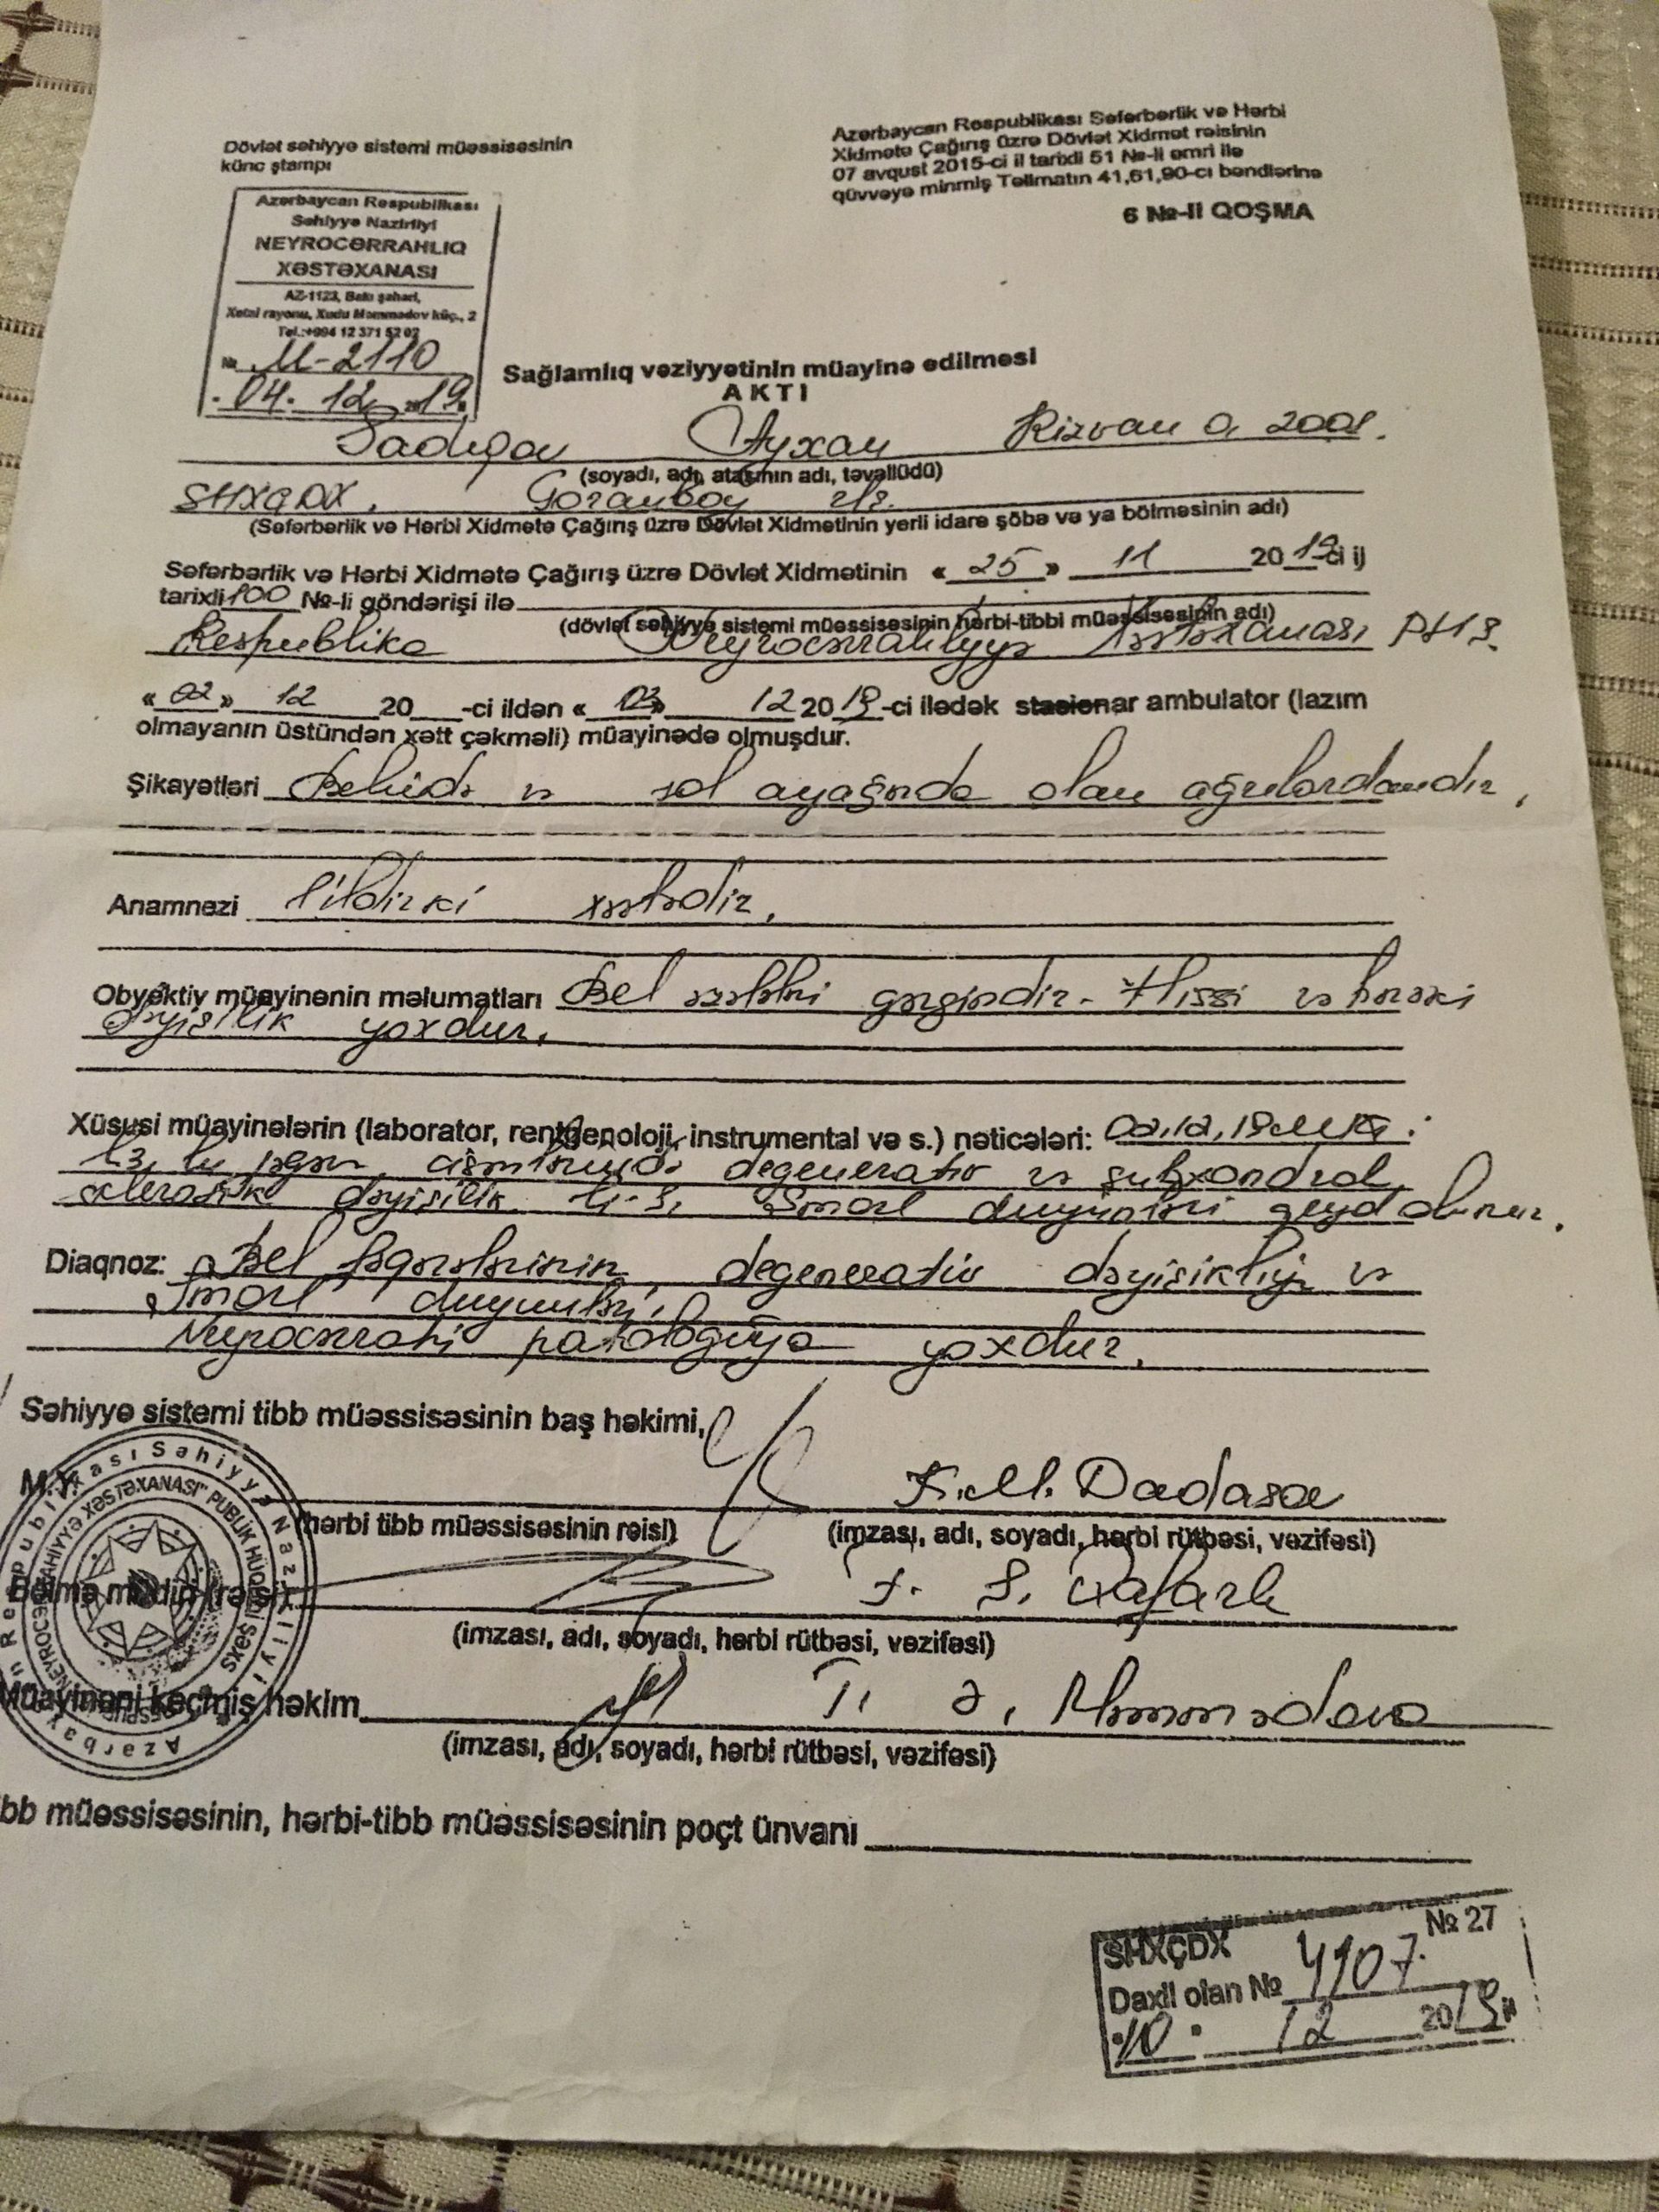 Dövlət səhiyyə sistemi müəssisəsinin
künc ştampı
Azərbaycan Respublikası Səfərbərlik və Hərbi
Xidmətə Çağırış üzrə Dövlət Xidmət rəisinin
07 avqust 2015-ci il tarixli 51 №-li əmri ilə
qüvvəyə minmiş Təlimatın 41,61,90-cı bəndlərinə
6 №-li QOŞMA
Azərbaycan Respublikası
Səhiyyə Nazirliyi
NEYROCƏRRAHLIQ
XƏSTƏXANASI
AZ-1123, Bakı şəhəri,
Xətai rayonu, Xudu Məmmədov küç., 2
Tel.:+994 12 371 52 02
№ M-2110
04. 12 2019
Sağlamlıq vəziyyətinin müayinə edilməsi
AKTI
Sadıqov Ayxan Rizvan o. 2001.
(soyadı, adı, atasının adı, təvəllüdü)
SHXÇDX, Goranboy
(Səfərbərlik və Hərbi Xidmətə Çağırış üzrə Dövlət Xidmətinin yerli idarə şöbə və ya bölməsinin adı)
Səfərbərlik və Hərbi Xidmətə Çağırış üzrə Dövlət Xidmətinin « 25 » 11 2019-ci il
tarixli 100 №-li göndərişi ilə
(dövlət səhiyyə sistemi müəssisəsinin hərbi-tibbi müəssisəsinin adı)
Respublika Neyrocərrahiyyə Xəstəxanası PHŞ.
« 02 » 12 20 -ci ildən « 03 » 12 2019-ci ilədək stasionar ambulator (lazım
olmayanın üstündən xətt çəkməli) müayinədə olmuşdur.
Şikayətləri Belində və sol ayağında olan ağrılardandır.
Anamnezi İldir ki xəstədir.
Obyektiv müayinənin məlumatları Bel əzələləri gərgindir. Hissi və hərəki
dəyişilik yoxdur.
Xüsusi müayinələrin (laborator, rentgenoloji, instrumental və s.) nəticələri: 02.12.19
degenerativ və subxondral
sklerotik dəyişilik Şmorl düyünləri qeyd olunur.
Diaqnoz: Bel fəqərələrinin degenerativ dəyişikliyi və
Şmorl düyünləri.
Neyrocərrahi patologiya yoxdur.
Səhiyyə sistemi tibb müəssisəsinin baş həkimi,
M.Y.
(hərbi tibb müəssisəsinin rəisi)
K.M. Dadaşov
(imzası, adı, soyadı, hərbi rütbəsi, vəzifəsi)
Bölmə müdiri (rəisi)
F. S. Cəfərli
(imzası, adı, soyadı, hərbi rütbəsi, vəzifəsi)
Müayinəni keçmiş həkim T. Ə. Məmmədova
(imzası, adı, soyadı, hərbi rütbəsi, vəzifəsi)
bb müəssisəsinin, hərbi-tibb müəssisəsinin poçt ünvanı
SHXÇDX № 27
Daxil olan № 4107
10 12 2019 il